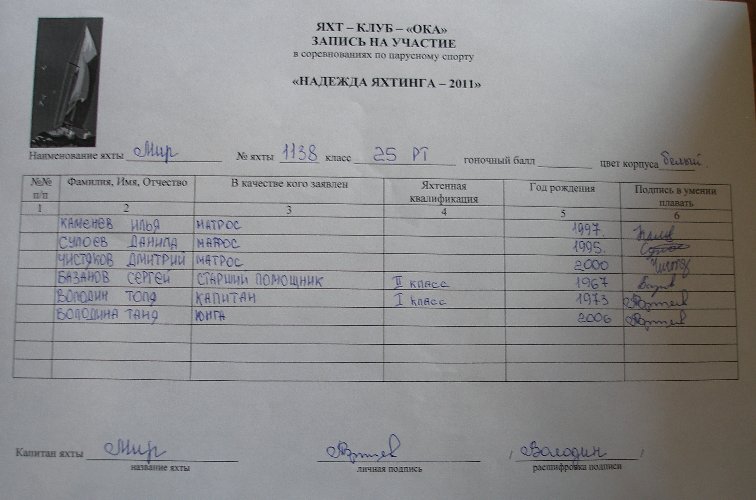 ЯХТ – КЛУБ – «ОКА»
ЗАПИСЬ НА УЧАСТИЕ
в соревнованиях по парусному спорту
«НАДЕЖДА ЯХТИНГА – 2011»
Наименование яхты Мир № яхты 1138 класс 25 РТ гоночный балл цвет корпуса белый.
№№ п/п Фамилия, Имя, Отчество В качестве кого заявлен Яхтенная квалификация Год рождения Подпись в умении плавать
1 2 3 4 5 6
КАМЕНЕВ ИЛЬЯ МАТРОС 1997.
СУЛОЕВ ДАНИЛА МАТРОС 1995.
ЧИСТЯКОВ ДМИТРИЙ МАТРОС 2000
БАЗАНОВ СЕРГЕЙ СТАРШИЙ ПОМОЩНИК II КЛАСС 1967
ВОЛОДИН ТОЛЯ КАПИТАН I КЛАСС 1973
ВОЛОДИНА ТАНЯ ЮНГА 2006
Капитан яхты Мир / Володин /
название яхты личная подпись расшифровка подписи